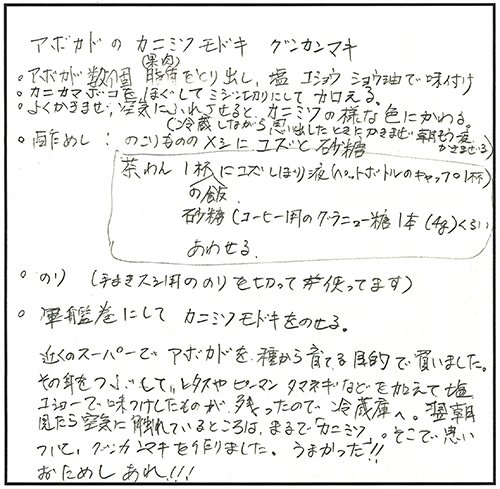 アボカドの カニミソモドキ グンカンマキ
(果肉)
・アボカド数個 脂質をとり出し、塩 コショウ ショウ油で味付け
・カニカマボコをほぐしてミジン切りにして加える。
・よくかきまぜ、空気にふれさせると、カニミソの様な色にかわる。
(冷蔵しながら思い出したときにかきまぜ 朝もう一度
かきまぜる)
○酢めし : のこりもののメシにユズと砂糖
茶わん 1杯にユズしぼり液(ペットボトルのキャップ1杯)
の飯
砂糖(コーヒー用のグラニュー糖1本(4g)くらい
あわせる
○のり (手まきスシ用ののりを切って使ってます)
○軍艦巻にして カニミソモドキをのせる。
近くのスーパーで アボカドを種から育てる目的で買いました。
その身をつぶして、レタスやピーマン タマネギなどを加えて塩
コショーで味つけしたものが、残ったので 冷蔵庫へ。翌朝
見たら空気に触れているところは、まるで「カニミソ」。そこで思い
ついて、グンカンマキを作りました。うまかった!!
おためしあれ!!!